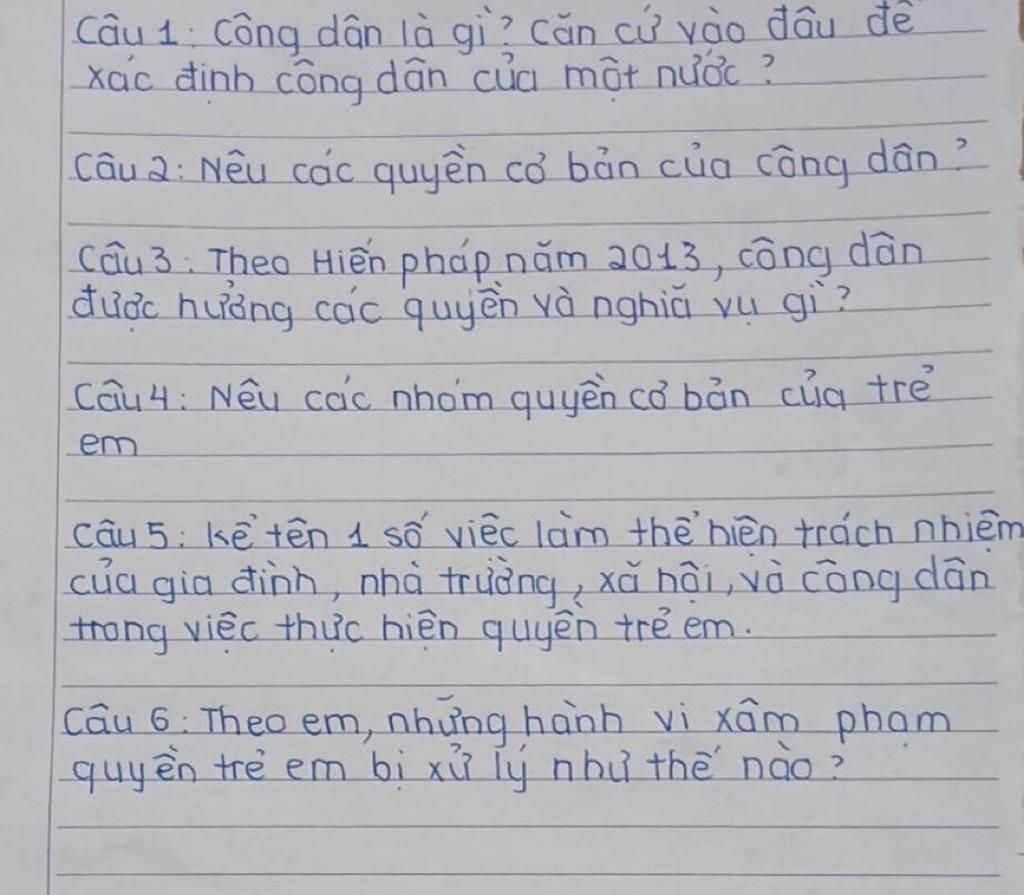 Câu 1: Công dân là gì? Căn cứ vào đâu để
xác định công dân của một nước?
Câu 2: Nêu các quyền cơ bản của công dân?
Câu 3: Theo Hiến pháp năm 2013, công dân
được hưởng các quyền và nghĩa vụ gì?
Câu 4: Nêu các nhóm quyền cơ bản của trẻ
em
Câu 5: kể tên 1 số việc làm thể hiện trách nhiệm
của gia đình, nhà trường, xã hội, và công dân
trong việc thực hiện quyền trẻ em.
Câu 6: Theo em, những hành vi xâm phạm
quyền trẻ em bị xử lý như thế nào?